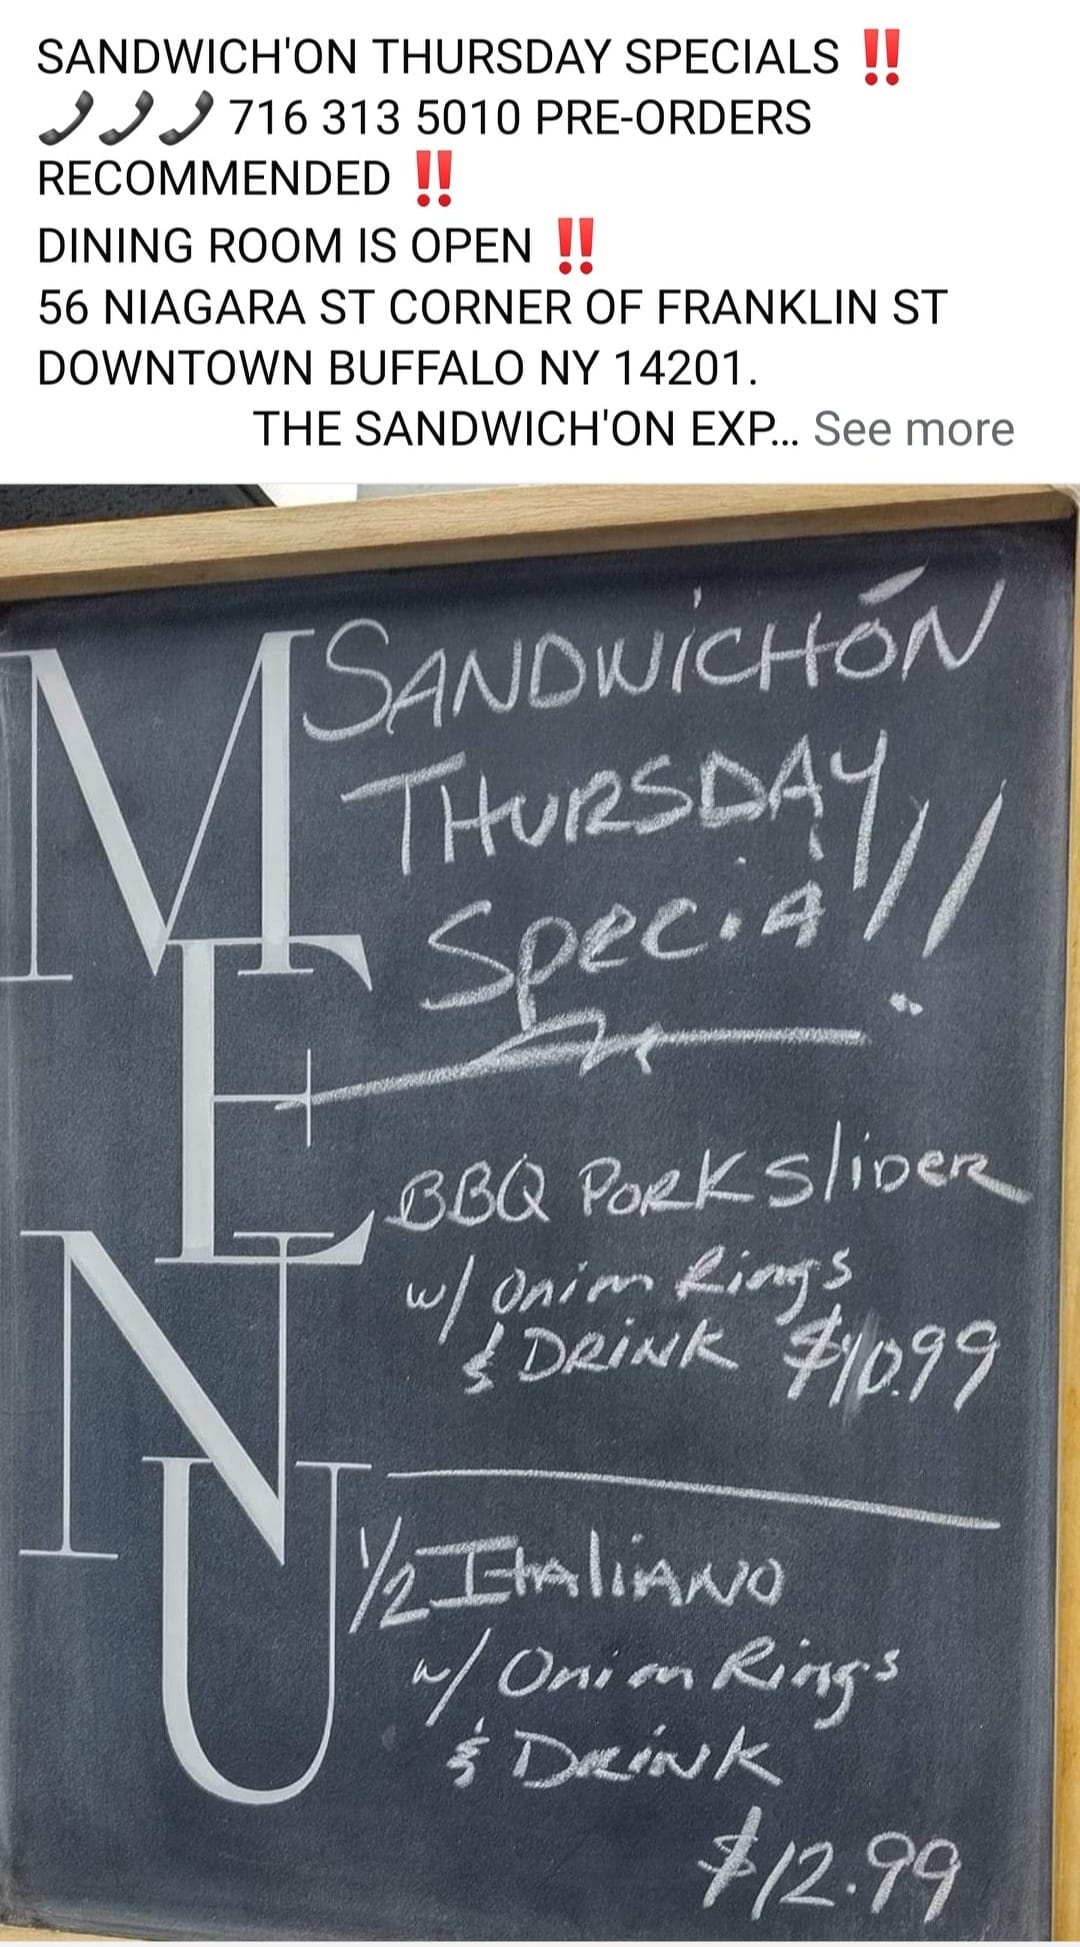 SANDWICH'ON THURSDAY SPECIALS ‼️
📞📞📞 716 313 5010 PRE-ORDERS
RECOMMENDED ‼️
DINING ROOM IS OPEN ‼️
56 NIAGARA ST CORNER OF FRANKLIN ST
DOWNTOWN BUFFALO NY 14201.
THE SANDWICH'ON EXP... See more
MENU
SANDWICH'ON
THURSDAY!!
Special
BBQ PORK SliDER
w/ Onion Rings
& DRiNK $10.99
1/2 ItAliANO
w/ Onion Rings
& DRiNK
$12.99